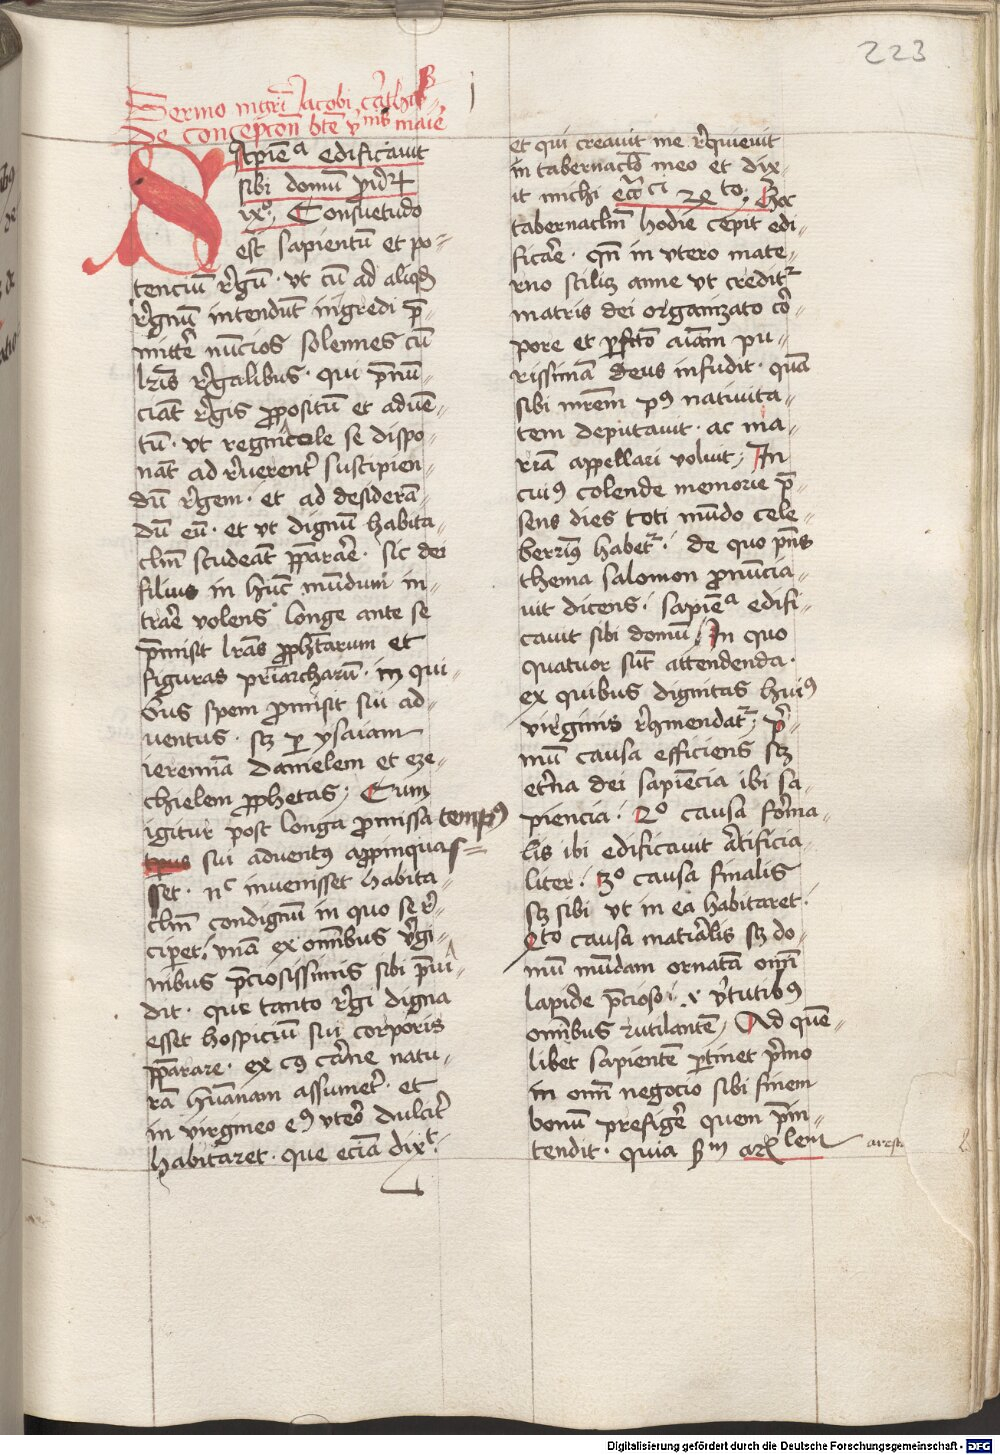 223
Sermo mgri Jacobi carthus
De concepcion bte vmis marie
SApiea edificauit
sibi domū puer
ixo Consuetudo
est sapientū et po-
tenciū regū · vt cū ad aliqd
regnū intendūt ingredi p̄-
mitte nūcios solennes cū
lris regalibus · qui pnū-
ciāt regis propositū et aduē-
tū · vt regnicole se dispo-
nāt ad reuerent suscipien-
dū regem · et ad desiderā-
dū eū · et vt dignū habita-
clm studeāt pparare · sic dei
filius in hūc mūdum in-
trare volens longe ante se
pmisit lras prophetarum et
figuras priarcharū · in qui-
bus spem promisit sui ad-
uentus · sz per ysaiam
ieremiā danielem et eze-
chielem prophetas Cum
igitur post longa promissa temps
tpus sui aduentus appinquas-
set · nc inuenisset habita-
clm condignū in quo se re-
ciperet vnā ex omibus virgi-
nibus preciosissimis sibi preui-
dit · que tanto regi digna
esset hospiciū sui corporis
pparare · ex cuius carne natu-
rā humanam assumeret · et
in virgineo eius vtero dulcit
habitaret · que eciā dixt
et qui creauit me requieuit
in tabernaclo meo et dix-
it michi ecci 24to Hoc
tabernaclm hodie cepit edi-
ficare · qn in vtero mate-
rno stilis anne vt creditr
matris dei organizato cor-
pore et perfcto aiam pu-
rissimā deus infudit · quā
sibi mrem post natiuita-
tem deputauit · ac ma-
riā appellari voluit In
cuius colende memorie pre-
sens dies toti mūdo cele-
berrius habetr · de quo pns
thema salomon pronuncia-
uit dicens sapiea edifi-
cauit sibi domū In quo
quatuor sūt attendenda ·
ex quibus dignitas huius
virginis recmendatr pri-
mū causa efficiens sz
eterna dei sapiēcia ibi sa-
piencia 2o causa forma-
lis ibi edificauit artificia-
liter 3o causa finalis
sz sibi vt in ea habitaret
4to causa materialis sz do-
mū mūdam ornatā omi
lapide precioso · virtutibus
omibus rutilantē Ad quē-
libet sapientē pertinet primo
in omi negocio sibi finem
bonū prefigere quem prein-
tendit · quia scdm arlem
Digitalisierung gefördert durch die Deutsche Forschungsgemeinschaft - DFG